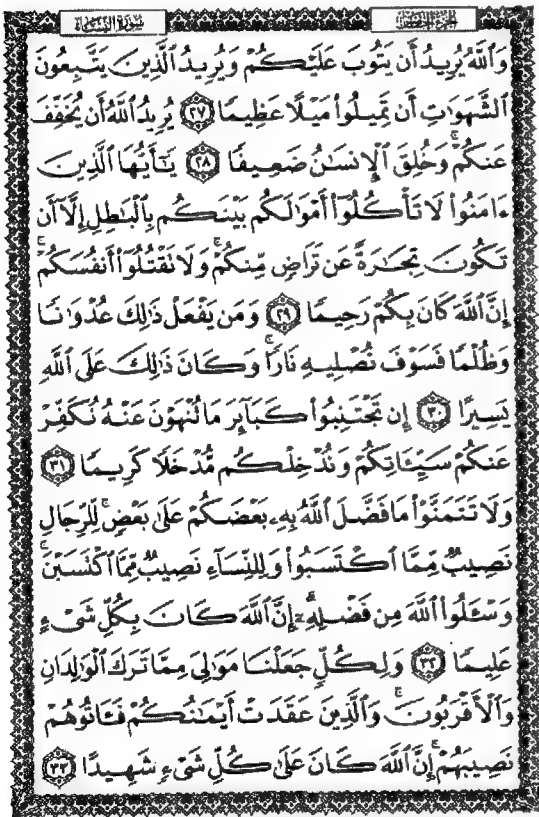 سورة النساء
الجزء الخامس
وَٱللَّهُ يُرِيدُ أَن يَتُوبَ عَلَيْكُمْ وَيُرِيدُ ٱلَّذِينَ يَتَّبِعُونَ
ٱلشَّهَوَٰتِ أَن تَمِيلُوا۟ مَيْلًا عَظِيمًا ٢٧ يُرِيدُ ٱللَّهُ أَن يُخَفِّفَ
عَنكُمْ ۚ وَخُلِقَ ٱلْإِنسَٰنُ ضَعِيفًا ٢٨ يَٰٓأَيُّهَا ٱلَّذِينَ
ءَامَنُوا۟ لَا تَأْكُلُوٓا۟ أَمْوَٰلَكُم بَيْنَكُم بِٱلْبَٰطِلِ إِلَّآ أَن
تَكُونَ تِجَٰرَةً عَن تَرَاضٍ مِّنكُمْ ۚ وَلَا تَقْتُلُوٓا۟ أَنفُسَكُمْ ۚ
إِنَّ ٱللَّهَ كَانَ بِكُمْ رَحِيمًا ٢٩ وَمَن يَفْعَلْ ذَٰلِكَ عُدْوَٰنًا
وَظُلْمًا فَسَوْفَ نُصْلِيهِ نَارًا ۚ وَكَانَ ذَٰلِكَ عَلَى ٱللَّهِ
يَسِيرًا ٣٠ إِن تَجْتَنِبُوا۟ كَبَآئِرَ مَا تُنْهَوْنَ عَنْهُ نُكَفِّرْ
عَنكُمْ سَيِّـَٔاتِكُمْ وَنُدْخِلْكُم مُّدْخَلًا كَرِيمًا ٣١
وَلَا تَتَمَنَّوْا۟ مَا فَضَّلَ ٱللَّهُ بِهِۦ بَعْضَكُمْ عَلَىٰ بَعْضٍ ۚ لِّلرِّجَالِ
نَصِيبٌ مِّمَّا ٱكْتَسَبُوا۟ ۖ وَلِلنِّسَآءِ نَصِيبٌ مِّمَّا ٱكْتَسَبْنَ ۚ
وَسْـَٔلُوا۟ ٱللَّهَ مِن فَضْلِهِۦٓ ۗ إِنَّ ٱللَّهَ كَانَ بِكُلِّ شَىْءٍ
عَلِيمًا ٣٢ وَلِكُلٍّ جَعَلْنَا مَوَٰلِىَ مِمَّا تَرَكَ ٱلْوَٰلِدَانِ
وَٱلْأَقْرَبُونَ ۚ وَٱلَّذِينَ عَقَدَتْ أَيْمَٰنُكُمْ فَـَٔاتُوهُمْ
نَصِيبَهُمْ ۚ إِنَّ ٱللَّهَ كَانَ عَلَىٰ كُلِّ شَىْءٍ شَهِيدًا ٣٣